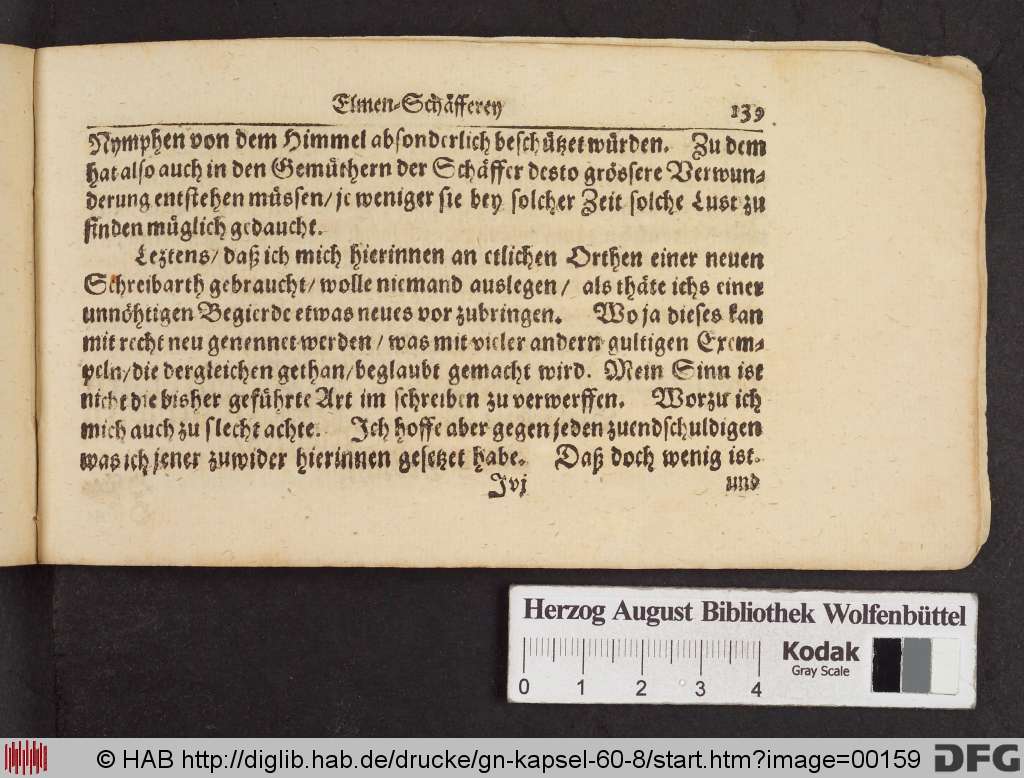 Elmen-Schäfferey 139
Nymphen von dem Himmel absonderlich beschützet würden. Zu dem
hat also auch in den Gemüthern der Schäffer desto grössere Verwun-
derung entstehen müssen/ je weniger sie bey solcher Zeit solche Lust zu
finden müglich gedaucht.
Leztens/ daß ich mich hierinnen an etlichen Orthen einer neuen
Schreibarth gebraucht/ wolle niemand auslegen/ als thäte ichs einer
unnöhtigen Begierde etwas neues vor zubringen. Wo ja dieses kan
mit recht neu genennet werden/ was mit vieler andern gultigen Exem-
peln/ die dergleichen gethan/ beglaubt gemacht wird. Mein Sinn ist
nicht die bisher geführte Art im schreiben zu verwerffen. Worzu ich
mich auch zu slecht achte. Ich hoffe aber gegen jeden zuendschuldigen
was ich jener zuwider hierinnen gesetzet habe. Daß doch wenig ist.
Jvj und
Herzog August Bibliothek Wolfenbüttel
Kodak
Gray Scale
0 1 2 3 4
© HAB http://diglib.hab.de/drucke/gn-kapsel-60-8/start.htm?image=00159
DFG